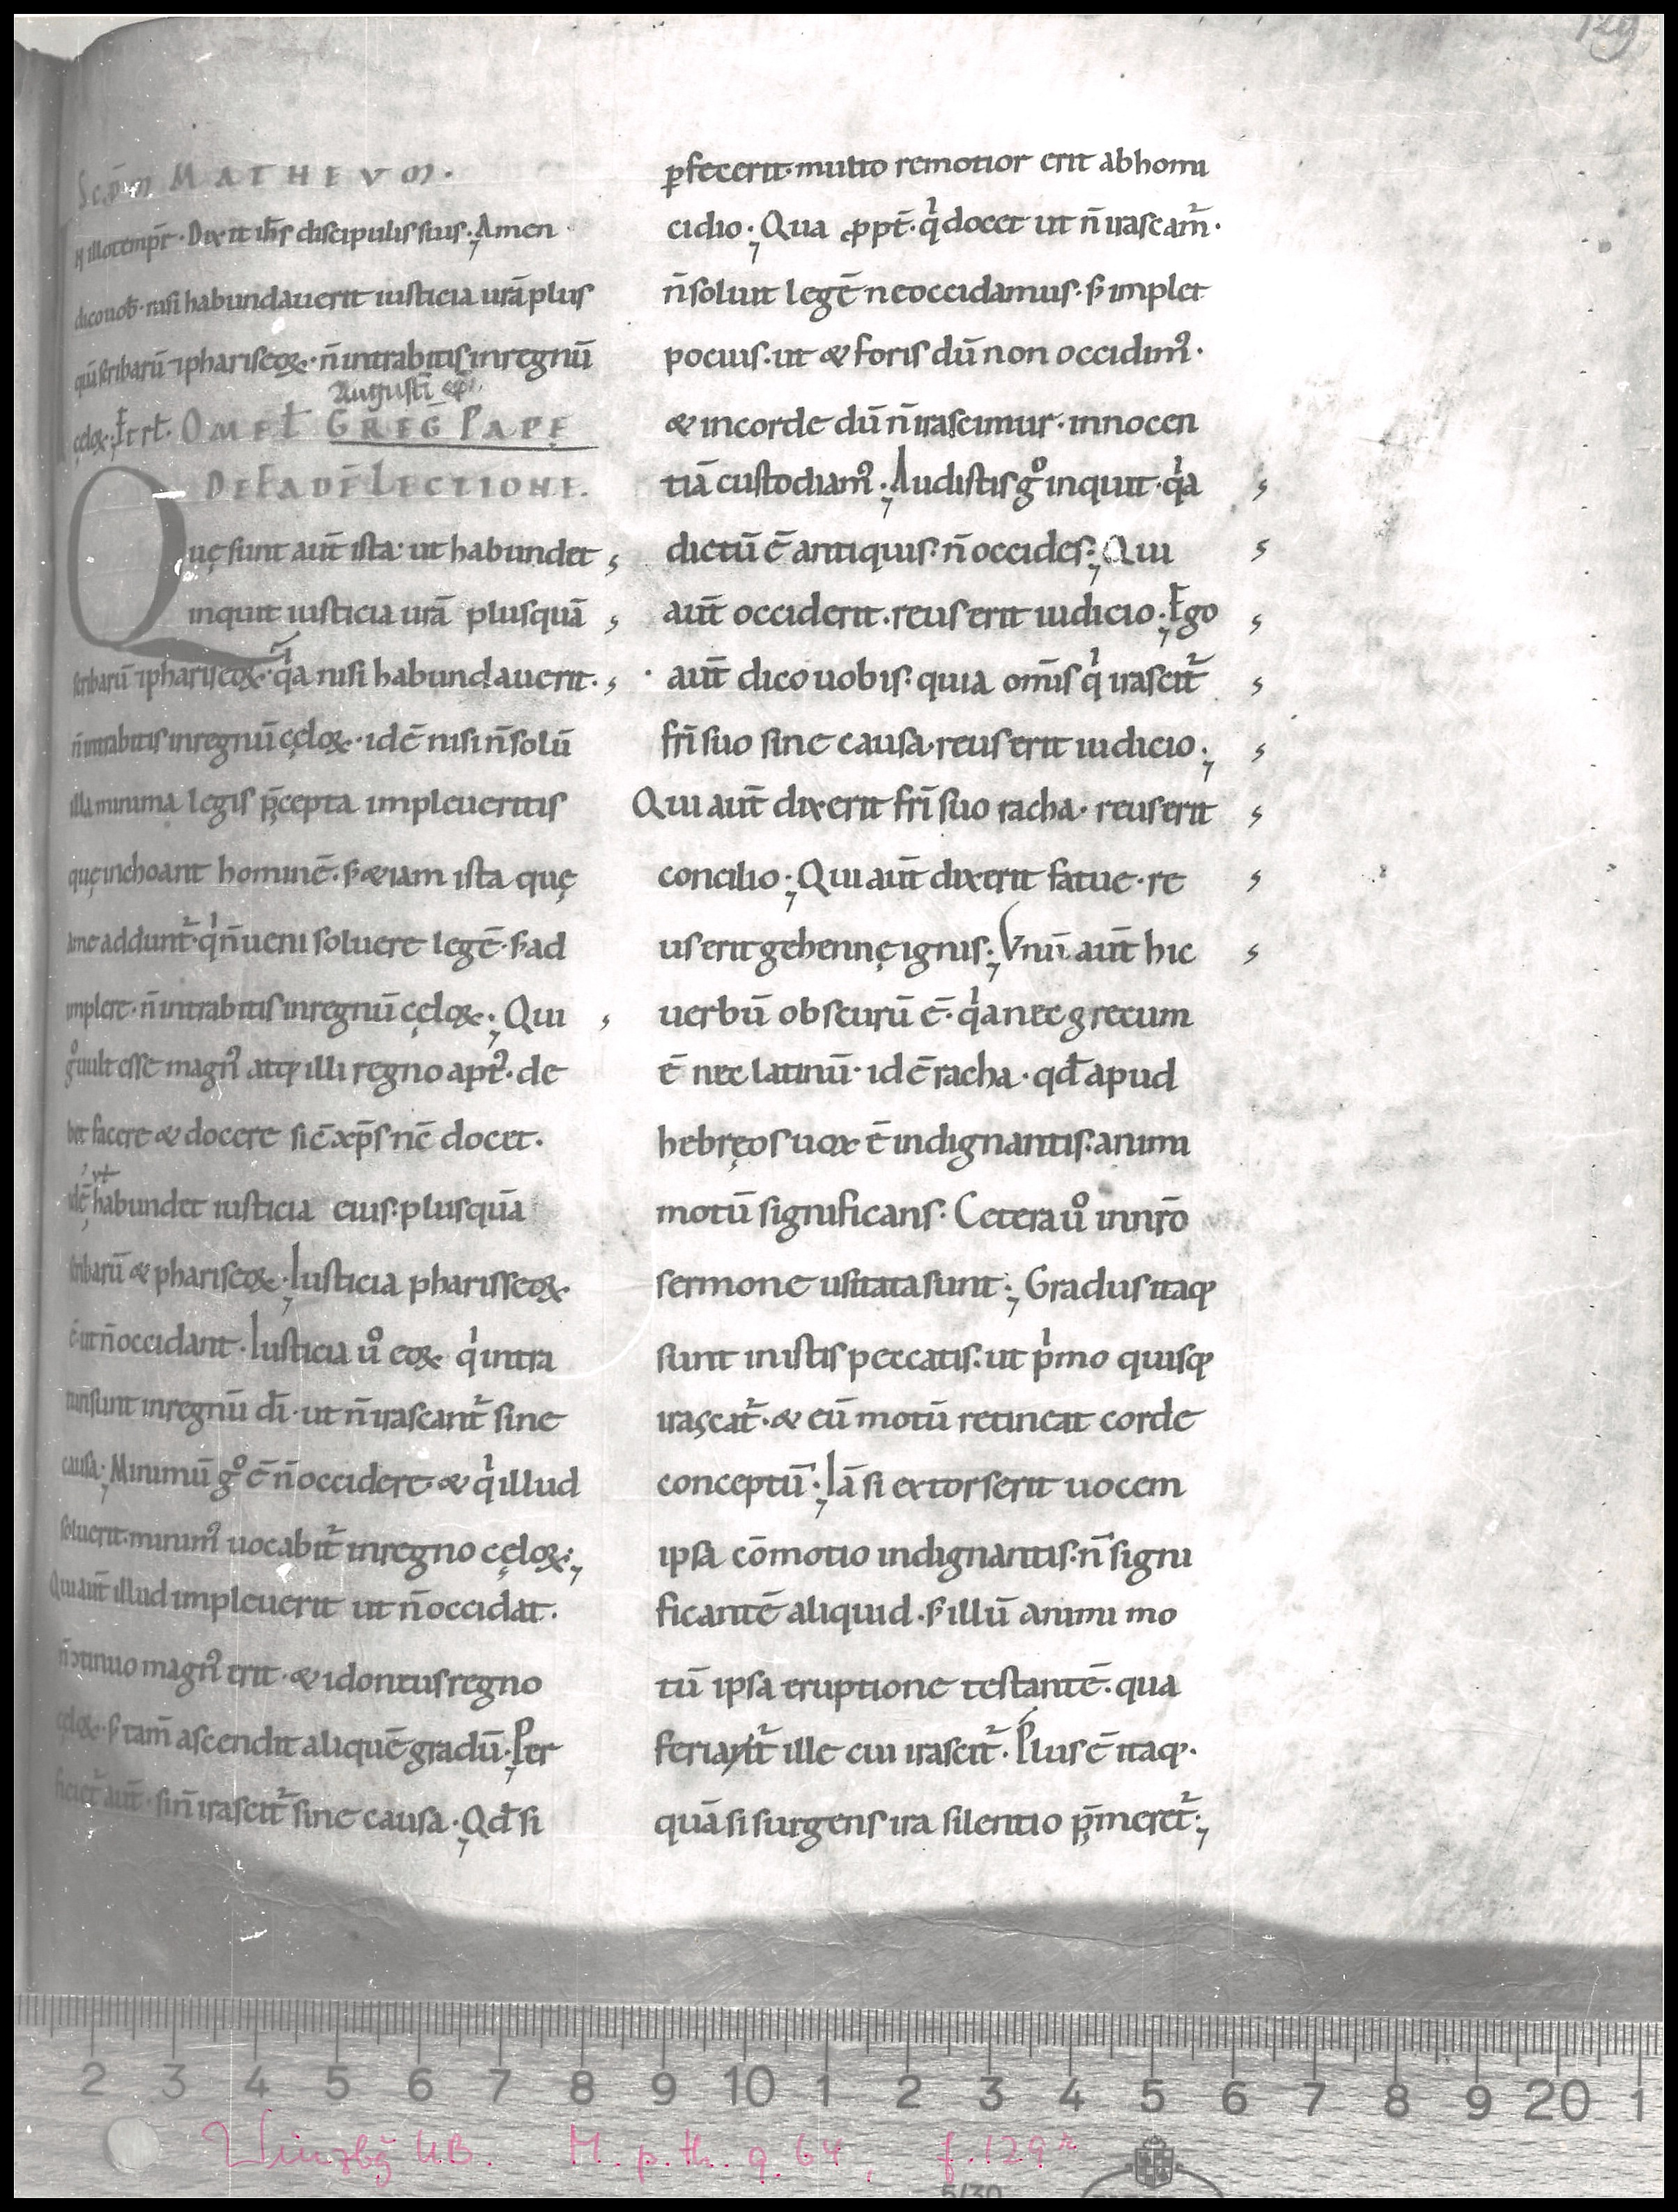 129
Scdm MATHEVM.
N illo temp̄r. Dixit ih̄s discipulis suis. Amen
dico uob̄. nisi habundauerit iusticia ur̄a plus
quā scribarū ⁊ phariseoꝝ. n̄ intrabitis in regnū
Augusti ep̄i
cęloꝝ. Et rl̄. OMEL̄ GREḠ PAPĘ
DE EADĒ LECTIONE.
Quę sunt aut̄ ista. ut habundet
inquit iusticia ur̄a plusquā
scribarū ⁊ phariseoꝝ. qͥa nisi habundauerit.
n̄ intrabitis in regnū cęloꝝ. id ē nisi n̄ solū
illa minima legis p̄cepta impleueritis
quę inchoant hominē. sꝫ & iam ista quę
a me adduntᷣ. qͥ n̄ ueni soluere legē. sꝫ ad
implere. n̄ intrabitis in regnū cęloꝝ. Qui
gͦ uult esse magnꝰ atqꝫ illi regno aptꝰ. de
bet facere & docere sic̄ xp̄s nc̄ docet.
id ē ut habundet iusticia eius. plusquā
scribarū & phariseoꝝ. Iusticia pharisseoꝝ
ē. ut n̄ occidant. Iusticia uͦ eoꝝ qͥ intra
turi sunt in regnū dī. ut n̄ irascantᷣ sine
causa. Minimū gͦ ē n̄ occidere. & qͥ illud
soluerit. minimꝰ uocabitᷣ in regno cęloꝝ.
Qui aut̄ illud impleuerit ut n̄ occidat.
n̄ ꝯtinuo magnꝰ erit. & idoneus regno
cęloꝝ. sꝫ tam̄ ascendit aliquē gradū. Per
ficietᷣ aut̄. si n̄ irascitᷣ sine causa. Qd̄ si
ꝑfecerit. multo remotior erit ab homi
cidio. Qua ꝓpt̄. qͥ docet ut n̄ irascam̄ᷣ.
n̄ soluit legē ne occidamus. sꝫ implet
pocius. ut & foris dū non occidimꝰ.
& in corde dū n̄ irascimur. innocen
tiā custodiamꝰ. Audistis gͦ inquit. qͥa
dictū ē antiquis. n̄ occides. Qui
aut̄ occiderit. reus erit iudicio. Ego
aut̄ dico uobis. quia om̄is qͥ irascitᷣ
fr̄i suo sine causa. reus erit iudicio.
Qui aut̄ dixerit fr̄i suo racha. reus erit
concilio. Qui aut̄ dixerit fatue. re
us erit gehennę ignis. Vnū aut̄ hic
uerbū obscurū ē. qͥa nec grecum
ē nec latinū. id ē racha. qd̄ apud
hebręos uox ē indignantis. animi
motū significans. Cetera uͦ in nr̄o
sermone usitata sunt. Gradus itaqꝫ
sunt in istis peccatis. ut pͥmo quisqꝫ
irascatᷣ. & eū motū retineat corde
conceptū. Iā si extorserit uocem
ipsa cōmotio indignantis. n̄ signi
ficantē aliquid. sꝫ illū animi mo
tū ipsa eruptione testantē. qua
feriatᷣ ille cui irascitᷣ. Plus ē itaqꝫ.
quā si surgens ira silentio p̄meretᷣ.
2 3 4 5 6 7 8 9 10 1 2 3 4 5 6 7 8 9 20 1
Würzbg U.B. M.p.th.q.64, f.129r
5/30